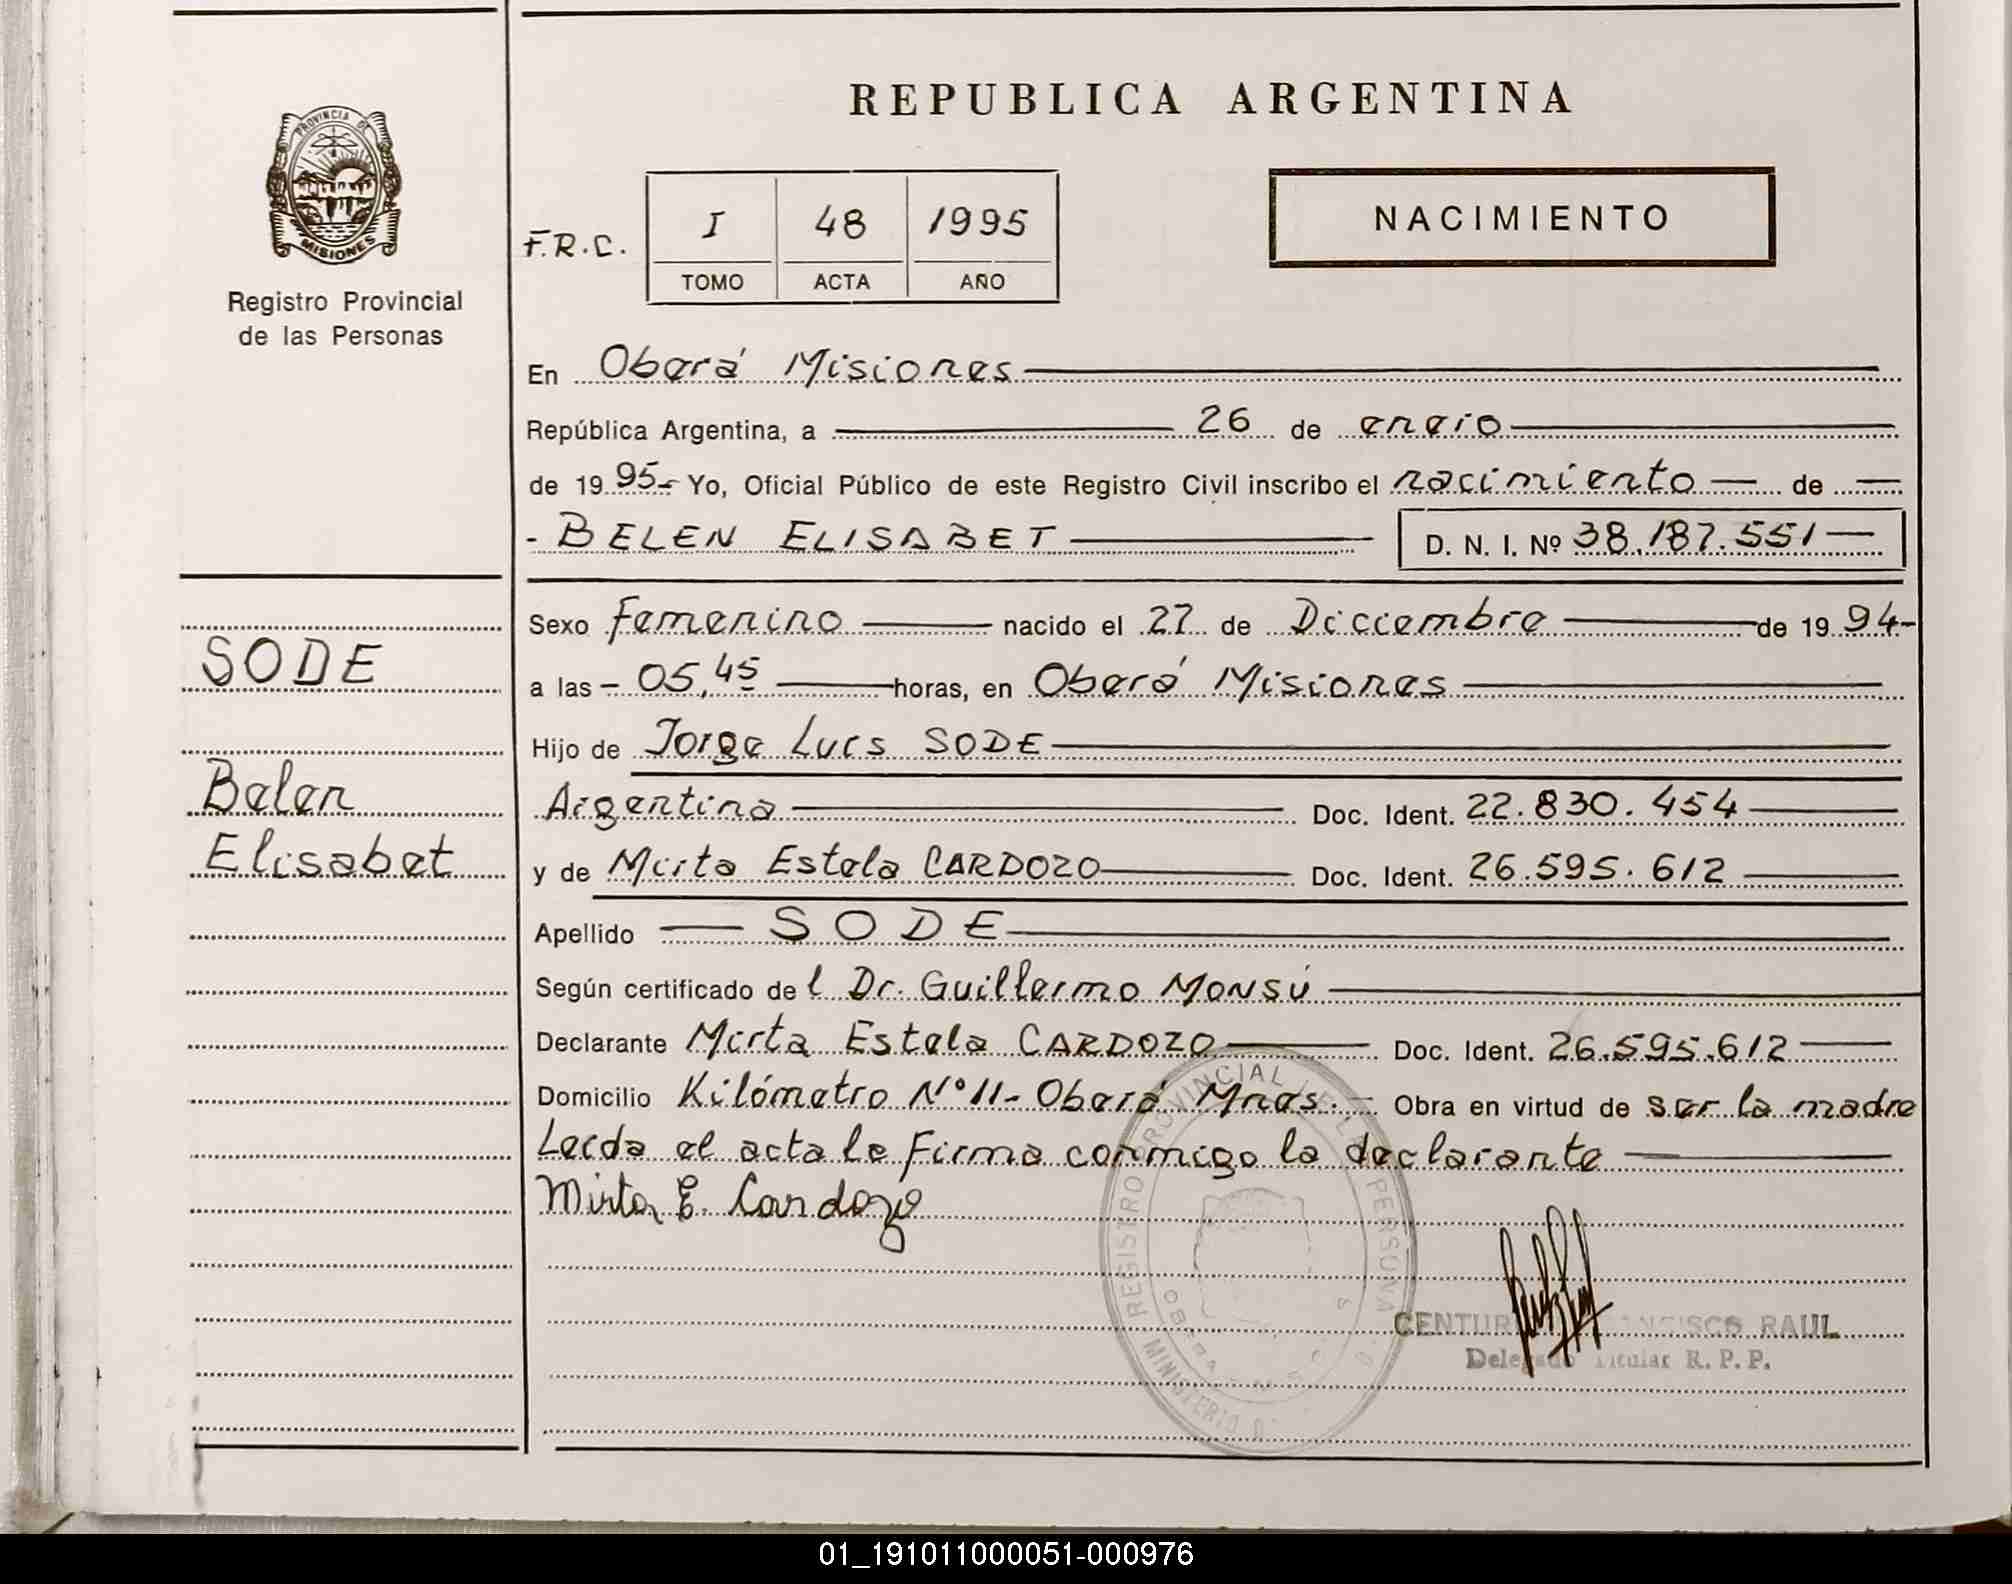 PROVINCIA DE
MISIONES
Registro Provincial
de las Personas
SODE
Belen
Elisabet
REPUBLICA ARGENTINA
F.R.C.
I 48 1995
TOMO ACTA AÑO
NACIMIENTO
En Oberá Misiones
República Argentina, a 26 de enero
de 19 95- Yo, Oficial Público de este Registro Civil inscribo el nacimiento de
- BELEN ELISABET D. N. I. Nº 38.187.551
Sexo Femenino nacido el 27 de Diciembre de 19 94-
a las - 05,45 horas, en Oberá Misiones
Hijo de Jorge Luis SODE
Argentina Doc. Ident. 22.830.454
y de Mirta Estela CARDOZO Doc. Ident. 26.595.612
Apellido SODE
Según certificado del Dr. Guillermo MONSÚ
Declarante Mirta Estela CARDOZO Doc. Ident. 26.595.612
Domicilio Kilómetro Nº 11- Oberá Mnes.- Obra en virtud de ser la madre
Leida el acta la Firma conmigo la declarante
Mirta E. Cardozo
REGISTRO PROVINCIAL DE LAS PERSONAS
MINISTERIO
RAUL
Delegado Titular R. P. P.
01_191011000051-000976